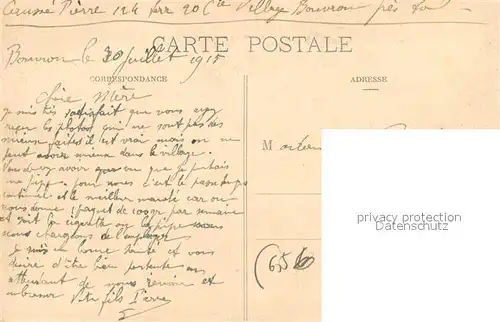 Pierre 124 20 Cie Village Bouvron près
Bouvron le 30 Juillet 1915
CARTE POSTALE
CORRESPONDANCE
ADRESSE
Chère Mère
Je suis très satisfait que vous avez
reçu les photos qui ne sont pas des
mieux faites il est vrai mais on ne
peut avoir mieux dans le village.
Vous devez avoir que je
ma pipe. pour nous c'est le passe temps
et le meilleur marché car on
nous donne 1 paquet de 100 gr par semaine
et soit la cigarette ou la pipe nous
nous chargeons de l'employer
Je suis en bonne santé et vous
désire d'être bien portante en
attendant de nous revoir et
embrasser Votre fils Pierre
M
privacy protection
Datenschutz
(656